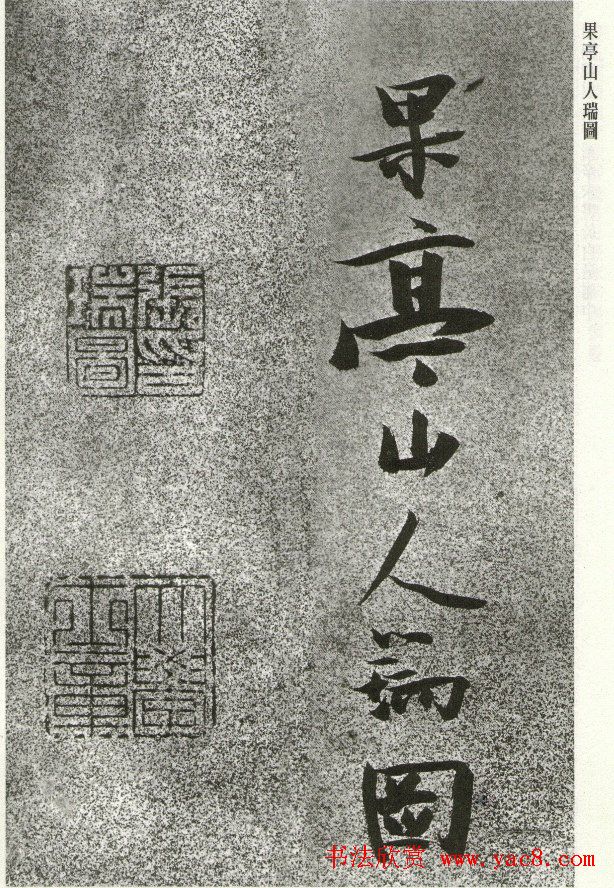 果亭山人瑞圖
果亭山人瑞圖
張瑞圖印
书法欣赏 www.yac8.com